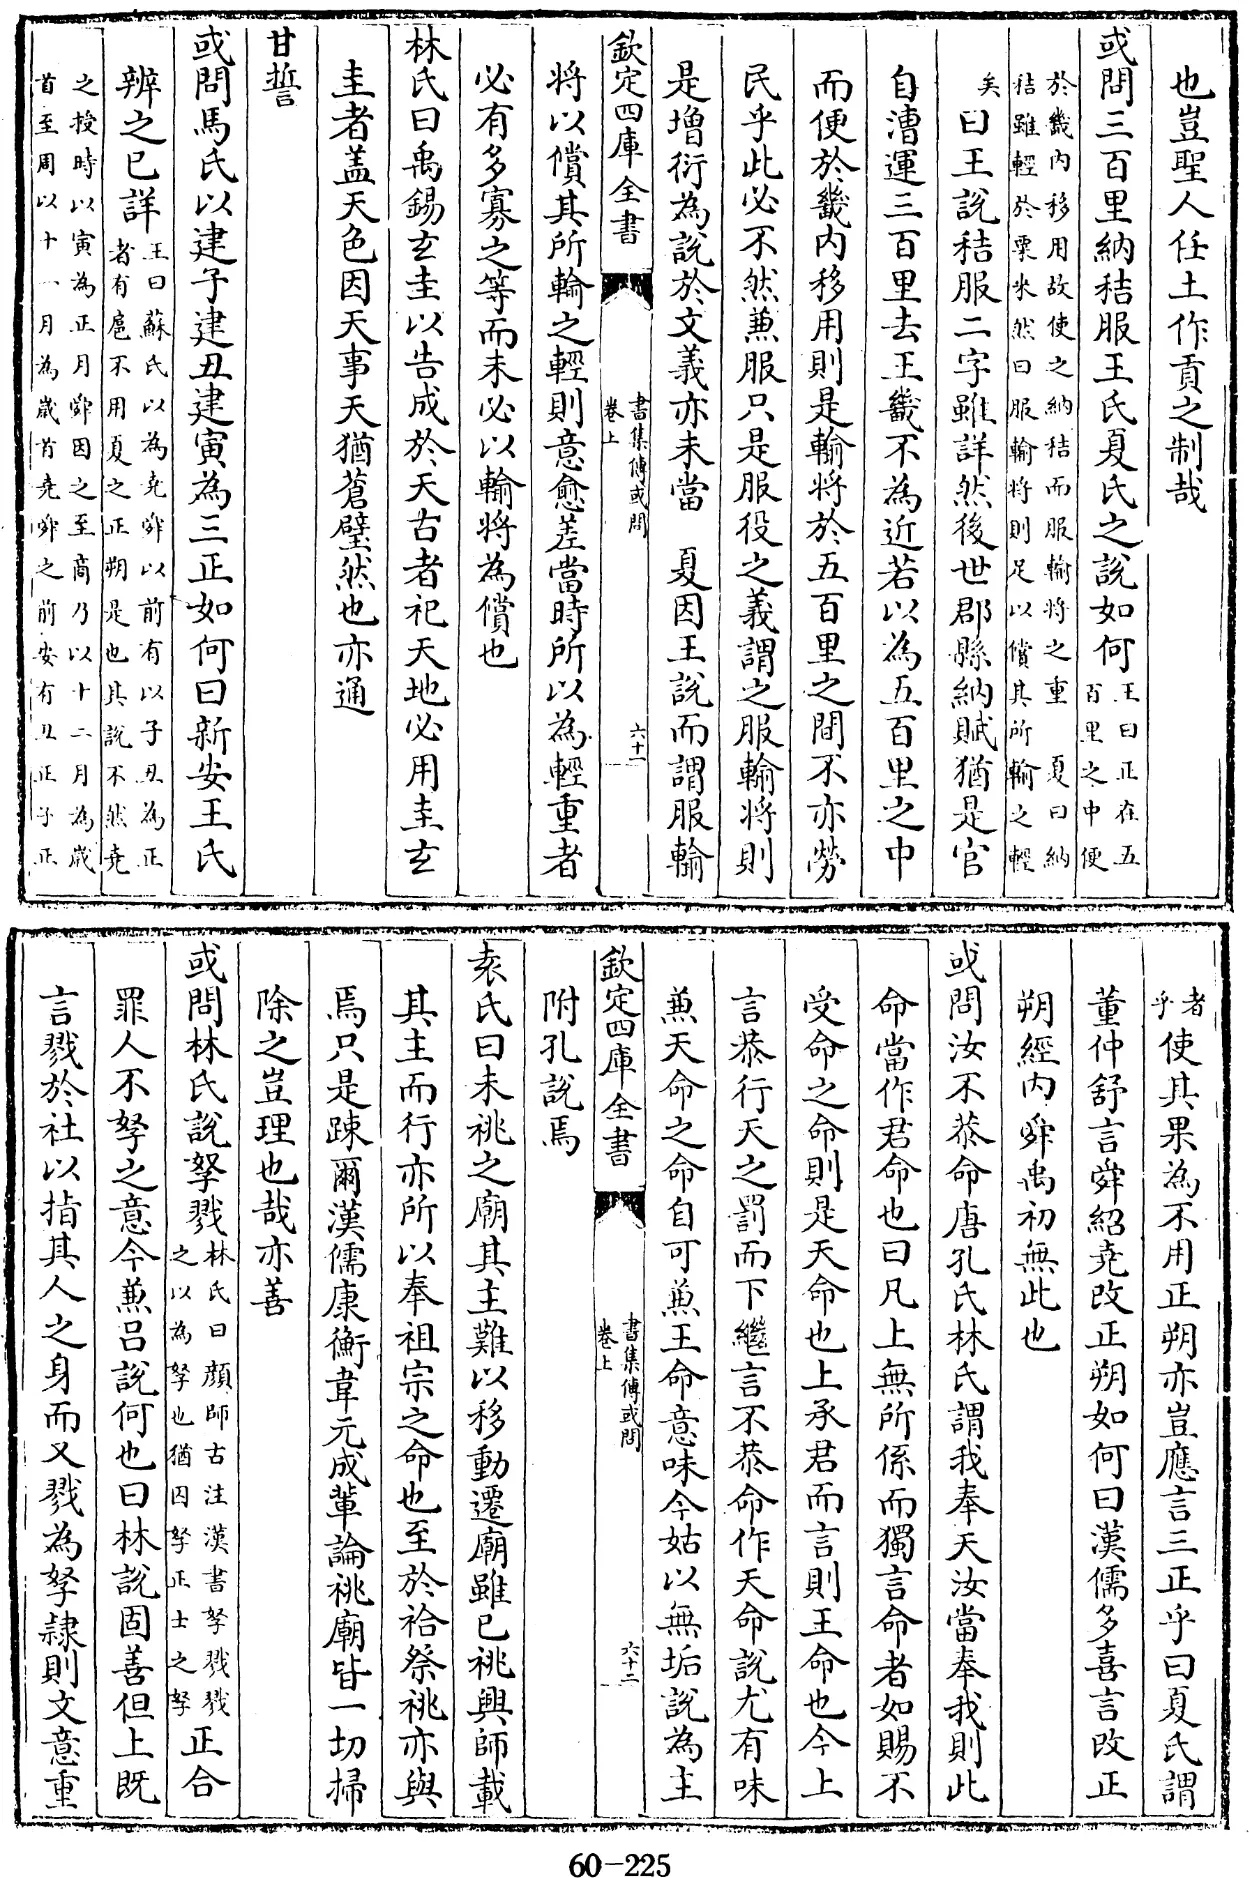 也豈聖人任土作貢之制哉
或問三百里納秸服王氏夏氏之說如何王曰正在五百里之中便
於畿内移用故使之納秸而服輸將之重 夏曰納秸雖輕於粟米然曰服輸將則足以償其所輸之輕
矣曰王說秸服二字雖詳然後世郡縣納賦猶是官
自漕運三百里去王畿不為近若以為五百里之中
而便於畿内移用則是輸將於五百里之間不亦勞
民乎此必不然兼服只是服役之義謂之服輸將則
是增衍為說於文義亦未當 夏因王說而謂服輸
欽定四庫全書
書集傳或問
卷上
六十一
將以償其所輸之輕則意愈差當時所以為輕重者
必有多寡之等而未必以輸將為償也
林氏曰禹錫玄圭以告成於天古者祀天地必用圭玄
圭者盖天色因天事天猶蒼璧然也亦通
甘誓
或問馬氏以建子建丑建寅為三正如何曰新安王氏
辨之已詳王曰蘇氏以為堯舜以前有以子丑為正者有扈不用夏之正朔是也其說不然堯
之授時以寅為正月舜因之至商乃以十二月為歲首至周以十一月為歲首堯舜之前安有丑正子正
者乎使其果為不用正朔亦豈應言三正乎曰夏氏謂
董仲舒言舜紹堯改正朔如何曰漢儒多喜言改正
朔經内舜禹初無此也
或問汝不恭命唐孔氏林氏謂我奉天汝當奉我則此
命當作君命也曰凡上無所係而獨言命者如賜不
受命之命則是天命也上承君而言則王命也今上
言恭行天之罰而下繼言不恭命作天命說尤有味
兼天命之命自可兼王命意味今姑以無垢說為主
欽定四庫全書
書集傳或問
卷上
六十二
附孔說焉
袁氏曰未祧之廟其主難以移動遷廟雖已祧與師載
其主而行亦所以奉祖宗之命也至於祫祭祧亦與
焉只是踈爾漢儒康衡韋元成軰論祧廟皆一切掃
除之豈理也哉亦善
或問林氏說孥戮林氏曰顔師古注漢書孥戮戮之以為孥也猶囚孥正士之孥正合
罪人不孥之意今兼吕說何也曰林說固善但上既
言戮於社以指其人之身而又戮為孥隷則文意重
60-225